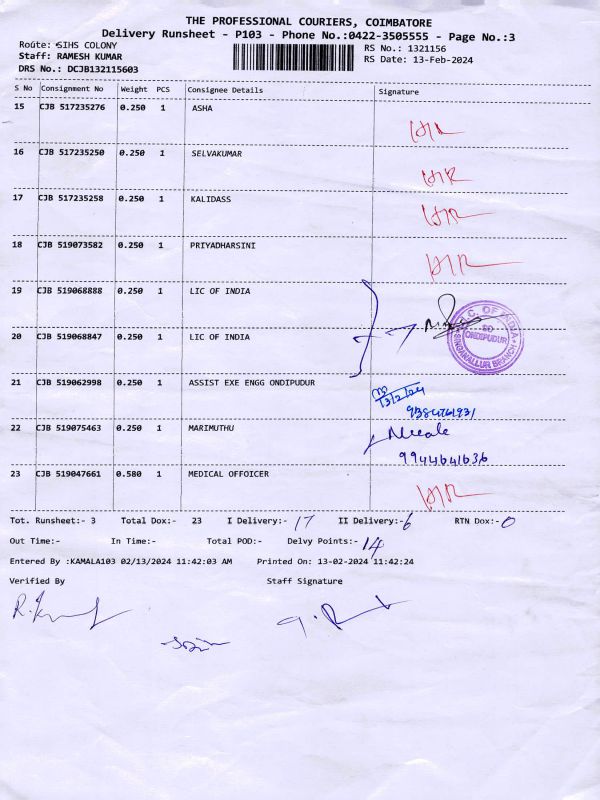 THE PROFESSIONAL COURIERS, COIMBATORE
Delivery Runsheet - P103 - Phone No.:0422-3505555 - Page No.:3
Route: SIHS COLONY
Staff: RAMESH KUMAR
DRS No.: DCJB132115603
RS No.: 1321156
RS Date: 13-Feb-2024
S No Consignment No Weight PCS Consignee Details Signature
15 CJB 517235276 0.250 1 ASHA
16 CJB 517235250 0.250 1 SELVAKUMAR
17 CJB 517235258 0.250 1 KALIDASS
18 CJB 519073582 0.250 1 PRIYADHARSINI
19 CJB 519068888 0.250 1 LIC OF INDIA
20 CJB 519068847 0.250 1 LIC OF INDIA
L.I.C. OF INDIA
SO
ONDIPUDUR
SINGANALLUR BRANCH
21 CJB 519062998 0.250 1 ASSIST EXE ENGG ONDIPUDUR
13/2/24
22 CJB 519075463 0.250 1 MARIMUTHU
9944641636
23 CJB 519047661 0.580 1 MEDICAL OFFOICER
Tot. Runsheet:- 3 Total Dox:- 23 I Delivery:- 17 II Delivery:- 6 RTN Dox:- 0
Out Time:- In Time:- Total POD:- Delvy Points:- 14
Entered By :KAMALA103 02/13/2024 11:42:03 AM Printed On: 13-02-2024 11:42:24
Verified By Staff Signature